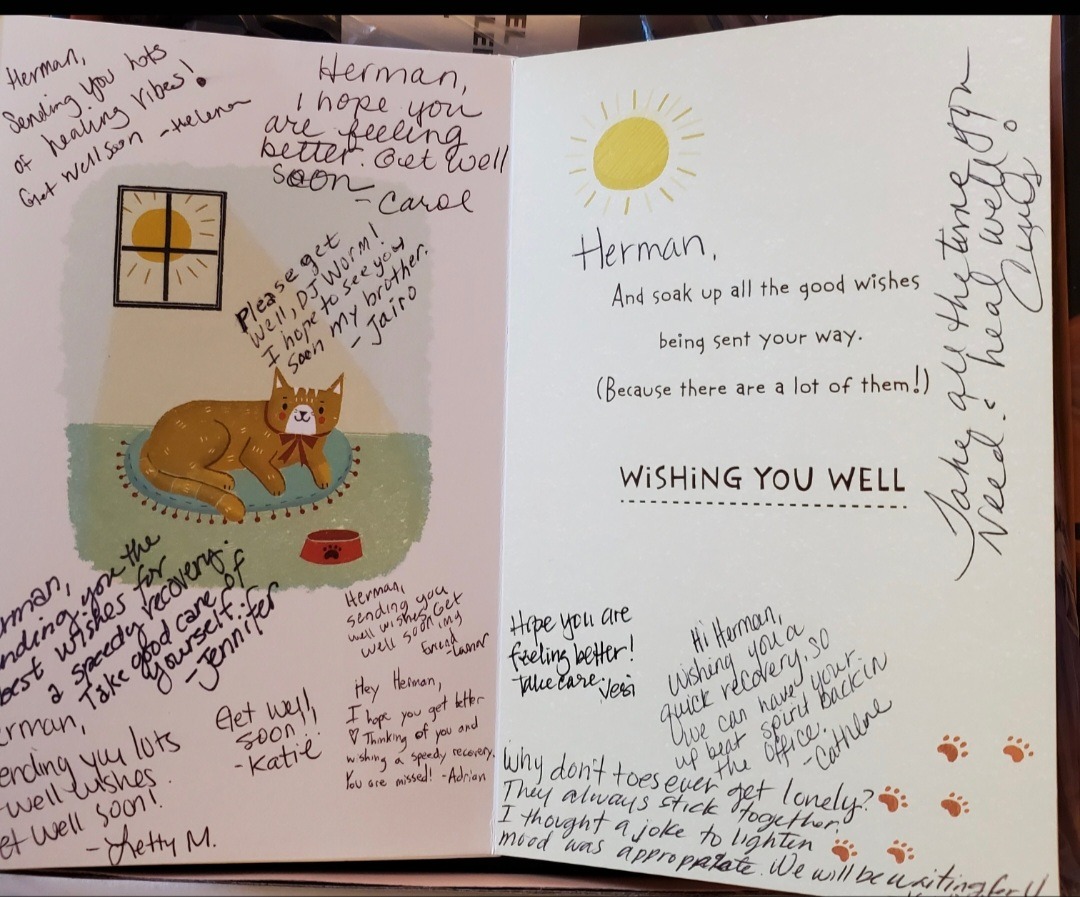 Herman,
Sending you lots
of healing vibes!
Get well soon -Helena
Herman,
I hope you
are feeling
better. Get well
soon
-Carol
Please get
well, DJ Worm!
I hope to see you
soon my brother.
- Jairo
the
best wishes for
a speedy recovery.
Take good care of
yourself.
-Jennifer
lots
well wishes
soon!
-Letty M.
Get well,
soon!
-Katie
Herman,
sending you
well wishes, Get
well soon my
friend
Hey Herman,
I hope you get better
♡ Thinking of you and
wishing a speedy recovery.
You are missed! -Adrian
Herman,
And soak up all the good wishes
being sent your way.
(Because there are a lot of them!)
WiSHiNG YOU WELL
Take all the time you
need & heal well!
Hope you are
feeling better!
Take care.
Yessi
Hi Herman,
Wishing you a
quick recovery, so
we can have your
up beat spirit back in
the office.
-Cathlene
Why don't toes ever get lonely?
They always stick together.
I thought a joke to lighten
mood was appropriate. We will be waiting for U